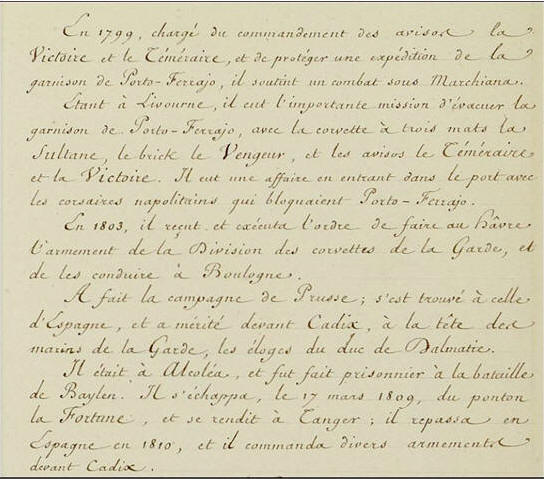 En 1799, chargé du commandement des avisos la
Victoire et le Téméraire, et de protéger une expédition de la
garnison de Porto-Ferrajo, il soutint un combat sous Marchiana.
Etant à Livourne, il eut l'importante mission d'évacuer la
garnison de Porto-Ferrajo, avec la corvette à trois mats la
Sultane, le brick le Vengeur, et les avisos le Téméraire
et la Victoire. Il eut une affaire en entrant dans le port avec
les corsaires napolitains qui bloquaient Porto-Ferrajo.
En 1803, il reçut et exécuta l'ordre de faire au hâvre
l'armement de la Division des corvettes de la Garde, et
de les conduire à Boulogne.
A fait la campagne de Prusse; s'est trouvé à celle
d'Espagne, et a mérité devant Cadix, à la tête des
marins de la Garde, les éloges du duc de Dalmatie.
Il était à Alcoléa, et fut fait prisonnier à la bataille
de Baylen. Il s'échappa, le 17 mars 1809, du ponton
la Fortune, et se rendit à Tanger; il repassa en
Espagne en 1810, et il commanda divers armements
devant Cadix.